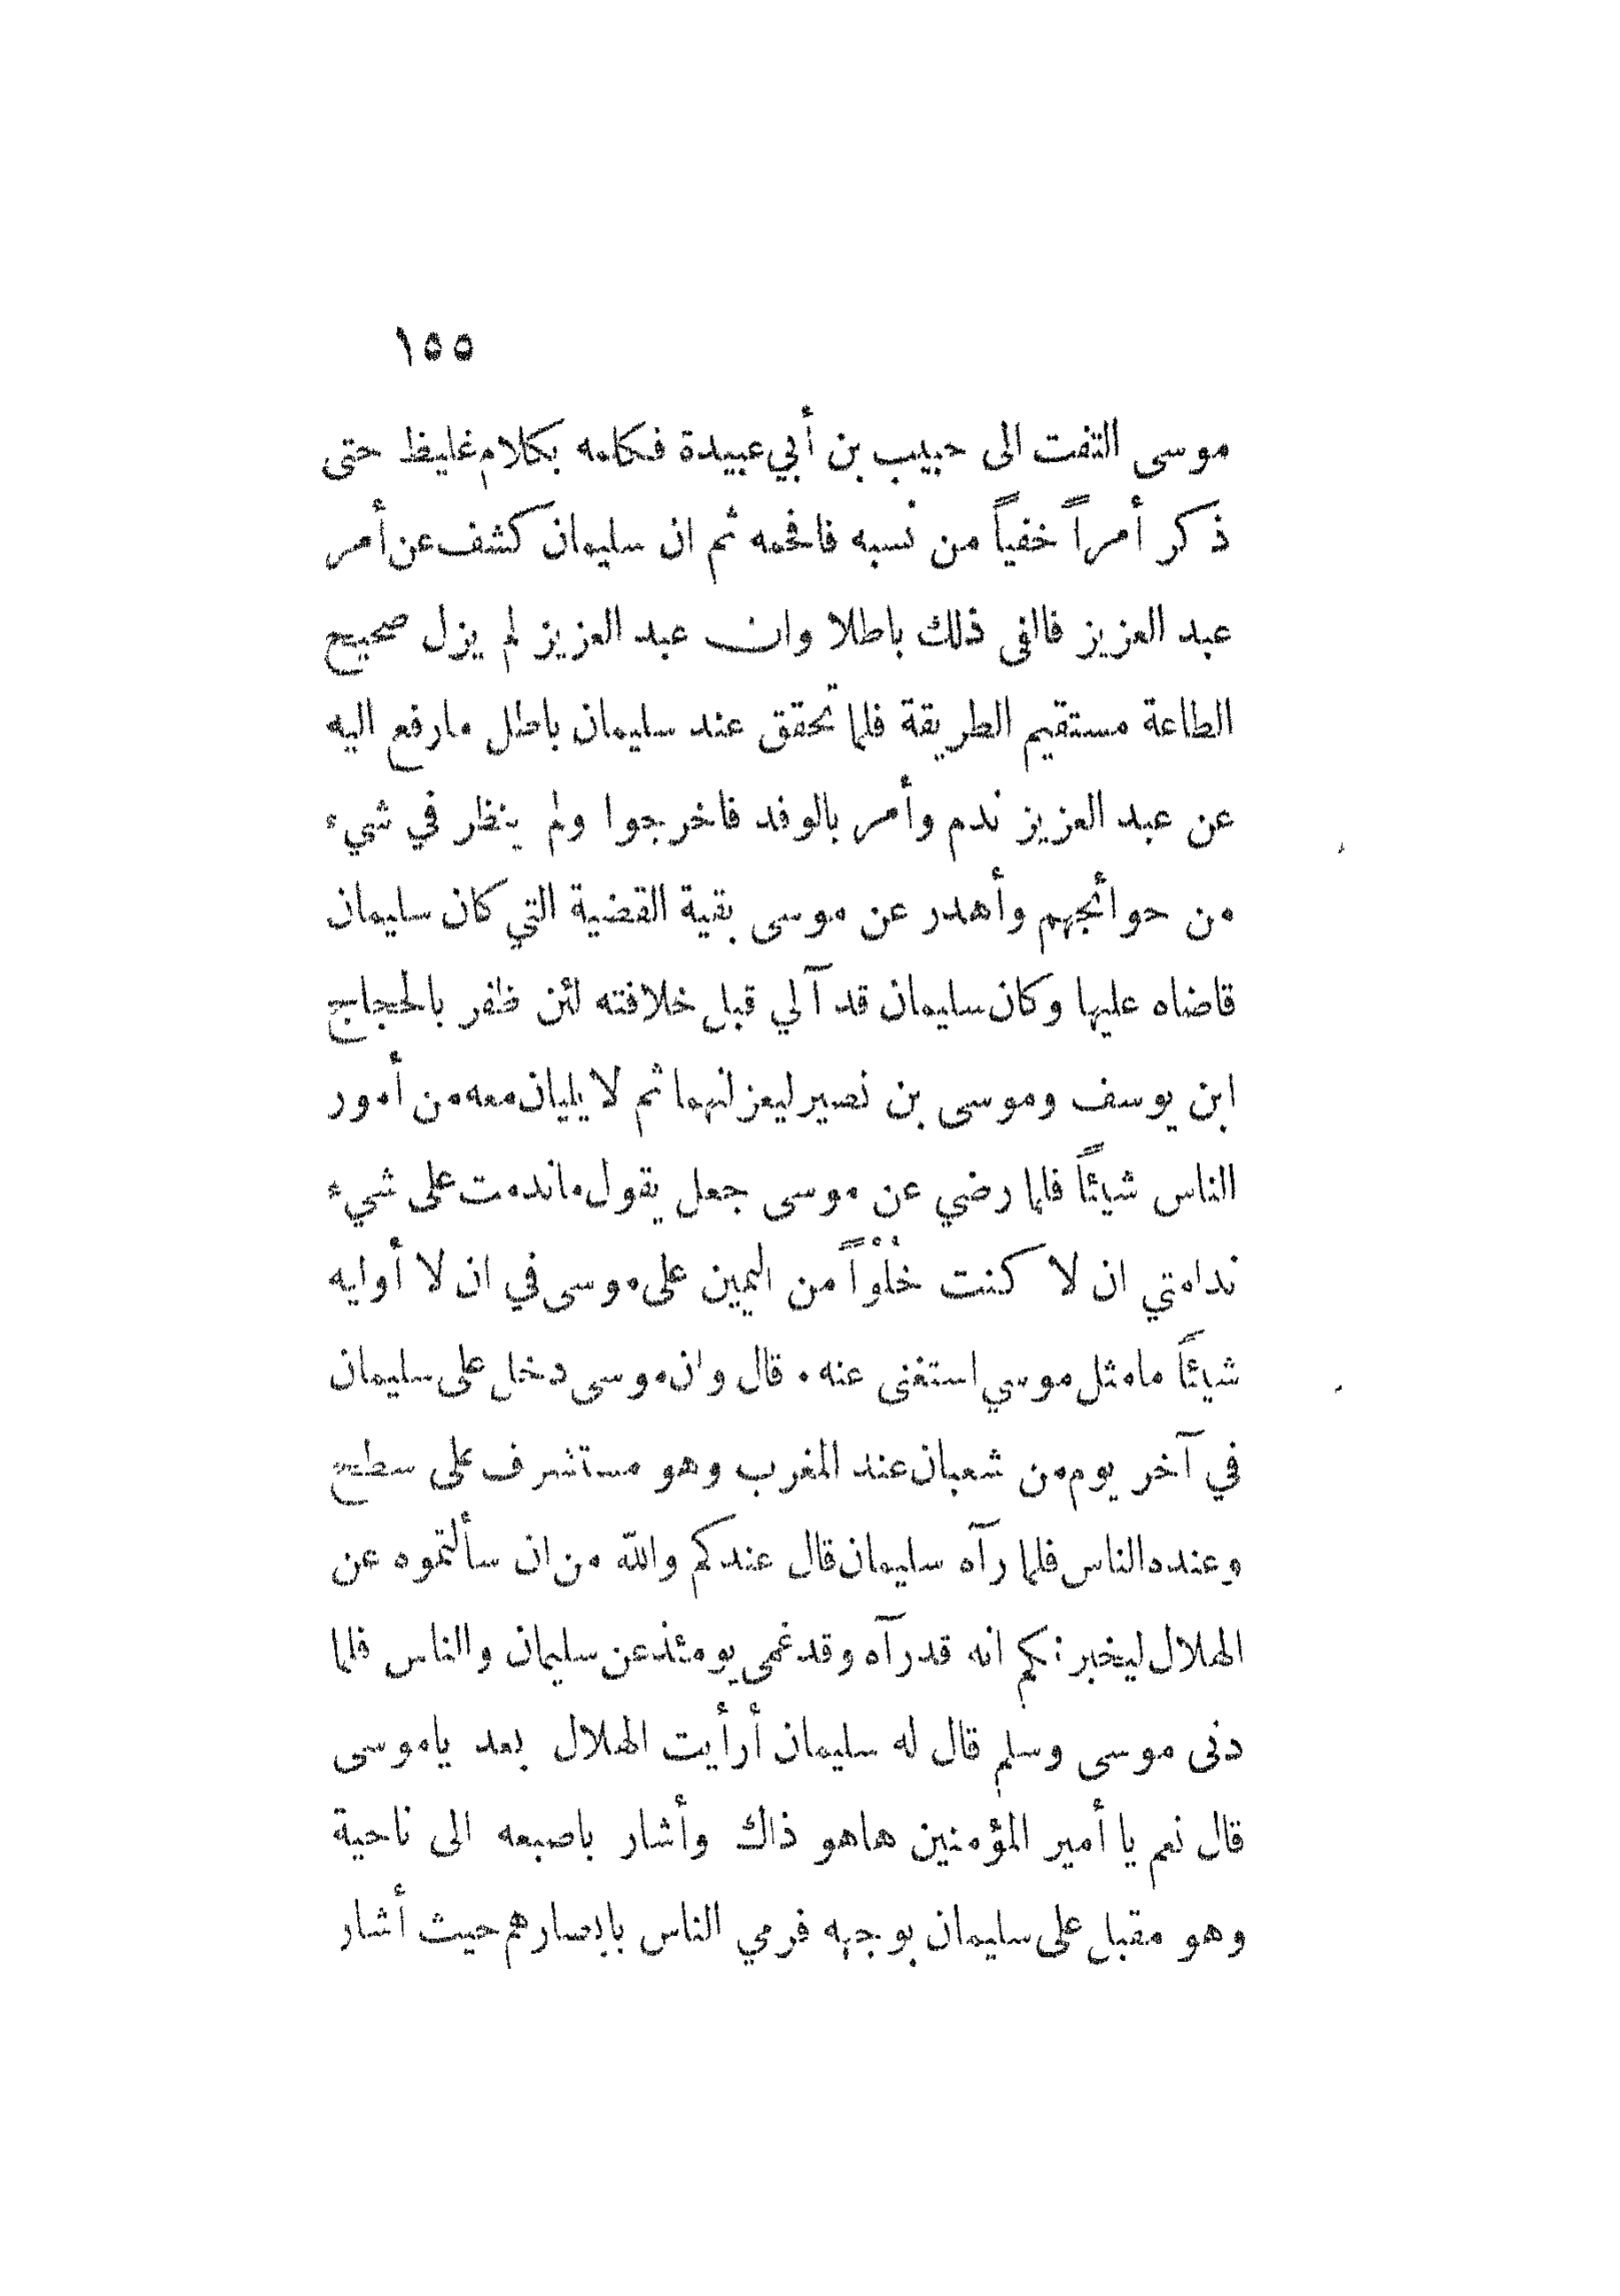 ١٥٥
موسى التفت الى حبيب بن أبي عبيدة فكلمه بكلام غليظ حتى
ذكر أمراً خفياً من نسبه فافحمه ثم ان سليمان كشف عن أمر
عبد العزيز فالفى ذلك باطلا وان عبد العزيز لم يزل صحيح
الطاعة مستقيم الطريقة فلما تحقق عند سليمان باطل مارفع اليه
عن عبد العزيز ندم وأمر بالوفد فاخرجوا ولم ينظر في شيء
من حوائجهم وأهدر عن موسى بقية القضية التي كان سليمان
قاضاه عليها وكان سليمان قد آلي قبل خلافته لئن ظفر بالحجاج
ابن يوسف وموسى بن نصير ليعزلنهما ثم لا يليان معه من أمور
الناس شيئاً فلما رضي عن موسى جعل يقول ماندمت على شيء
ندامتي ان لا كنت خُلْواً من اليمين على موسى في ان لا أوليه
شيئاً مامثل موسي استغنى عنه . قال وان موسى دخل على سليمان
في آخر يوم من شعبان عند المغرب وهو مستشرف على سطح
وعنده الناس فلما رآه سليمان قال عندكم والله من ان سألتموه عن
الهلال ليخبرنكم انه قد رآه وقد غمى يومئذ عن سليمان والناس فلما
دنى موسى وسلم قال له سليمان أرأيت الهلال بعد ياموسى
قال نعم يا أمير المؤمنين هاهو ذاك وأشار باصبعه الى ناحية
وهو مقبل على سليمان بوجهه فرمي الناس بابصارهم حيث أشار